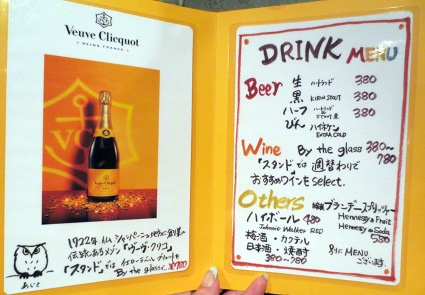 Veuve Clicquot
REIMS FRANCE
VC
Veuve Clicquot
1922年、仏シャンパーニュ地方に創業の
伝統あるメゾン「ヴーヴ・クリコ」
「スタンド」では イエローラベル ブリュットを
By the glass で。 ¥980
DRINK MENU
Beer 生 ハートランド 380
黒 KIRIN STOUT 380
ハーフ ハートランド STOUT 黒 380
びん ハイネケン EXTRA COLD
Wine By the glass 380〜780
「スタンド」では 週替わりで
おすすめワインを select.
Others
ハイボール 480
Johnnie Walker RED
梅酒・カクテル
日本酒・焼酎
380〜780
ブランデースプリッツァー
Hennessy & Fruit
Hennessy & Soda
580
別に MENU
ございます。